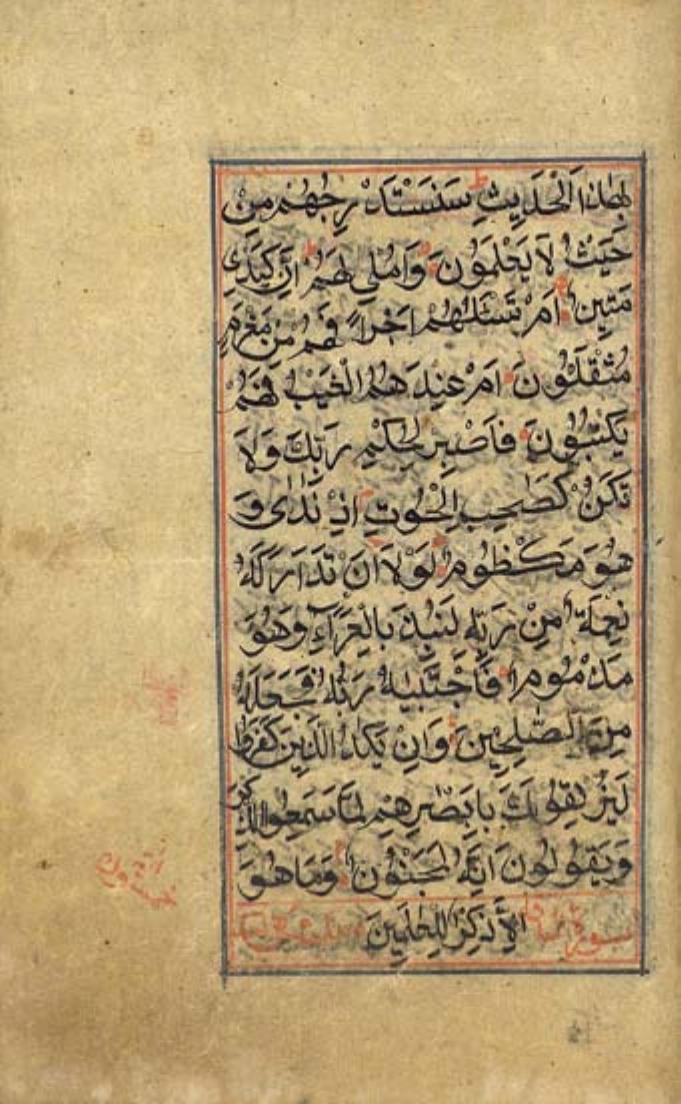 بِهٰذَا الْحَدِيثِ سَنَسْتَدْرِجُهُمْ مِنْ
حَيْثُ لَا يَعْلَمُونَ وَاُمْلِي لَهُمْ اِنَّ كَيْدِي
مَتِينٌ اَمْ تَسْئَلُهُمْ اَجْرًا فَهُمْ مِنْ مَغْرَمٍ
مُثْقَلُونَ اَمْ عِنْدَهُمُ الْغَيْبُ فَهُمْ
يَكْتُبُونَ فَاصْبِرْ لِحُكْمِ رَبِّكَ وَلَا
تَكُنْ كَصَاحِبِ الْحُوتِ اِذْ نَادٰى وَ
هُوَ مَكْظُومٌ لَوْلَا اَنْ تَدَارَكَهُ
نِعْمَةٌ مِنْ رَبِّهِ لَنُبِذَ بِالْعَرَاءِ وَهُوَ
مَذْمُومٌ فَاجْتَبٰيهُ رَبُّهُ فَجَعَلَهُ
مِنَ الصّٰلِحِينَ وَاِنْ يَكَادُ الَّذِينَ كَفَرُوا
لَيُزْلِقُونَكَ بِاَبْصٰرِهِمْ لَمَّا سَمِعُوا الذِّكْرَ
وَيَقُولُونَ اِنَّهُ لَمَجْنُونٌ وَمَا هُوَ
سورة اِلَّا ذِكْرٌ لِلْعٰلَمِينَ